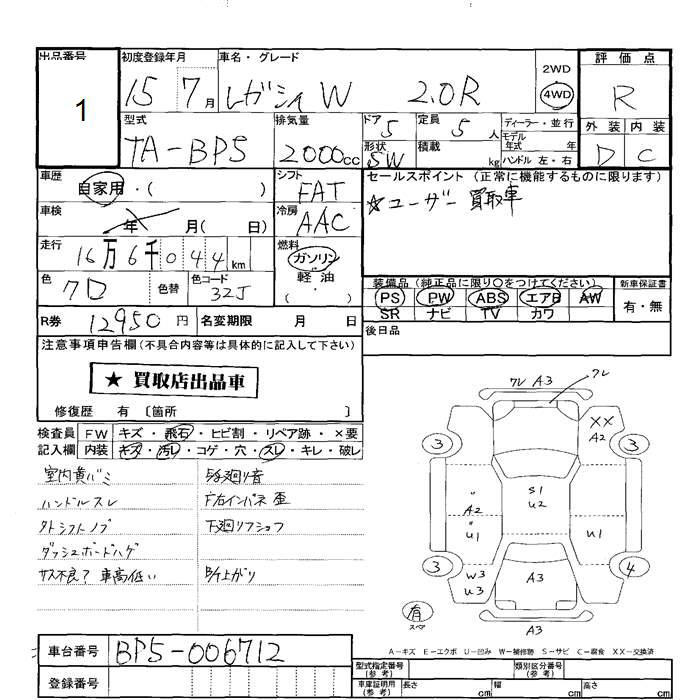 出品番号 初度登録年月 車名・グレード 2WD 評価点
1 15 7月 レガシィW 2.0R 4WD R
型式 排気量 ドア 定員 ディーラー・並行 外装 内装
TA-BP5 2000cc 5 5人 モデル年式 年 D C
形状 SW 積載 kg ハンドル 左・右
車歴 自家用・( ) シフト FAT セールスポイント (正常に機能するものに限ります)
☆ユーザー買取車
車検 年 月( 日) 冷房 AAC
走行 16万6千044km 燃料 ガソリン・軽油・( )
色 クロ 色替 色コード 32J 装備品(純正品に限り○をつけてください) 新車保証書
PS PW ABS エアB AW 有・無
SR ナビ TV カワ
R券 12950円 名変期限 月 日 後日品
注意事項申告欄(不具合内容等は具体的に記入して下さい)
★ 買取店出品車
修復歴 有 〔箇所 〕
検査員 FW キズ・飛石・ヒビ割・リペア跡・×要
記入欄 内装 キズ・汚レ・コゲ・穴・スレ・キレ・破レ
ハンドルスレ
下廻リ
ダッシュボードハゲ
サス不良? 車高低い
フレ A3 フレ
XX
A2
3 3
S1
U2
A2
U1 U1
3 4
W3
U3 A3
有
スペア
A3
A-キズ E-エクボ U-凹み W-補修跡 S-サビ C-腐食 XX-交換済
車台番号 BP5-006712
登録番号
型式指定番号(参考) 類別区分番号(参考)
車庫証明用(参考) 長さ cm 幅 cm 高さ cm